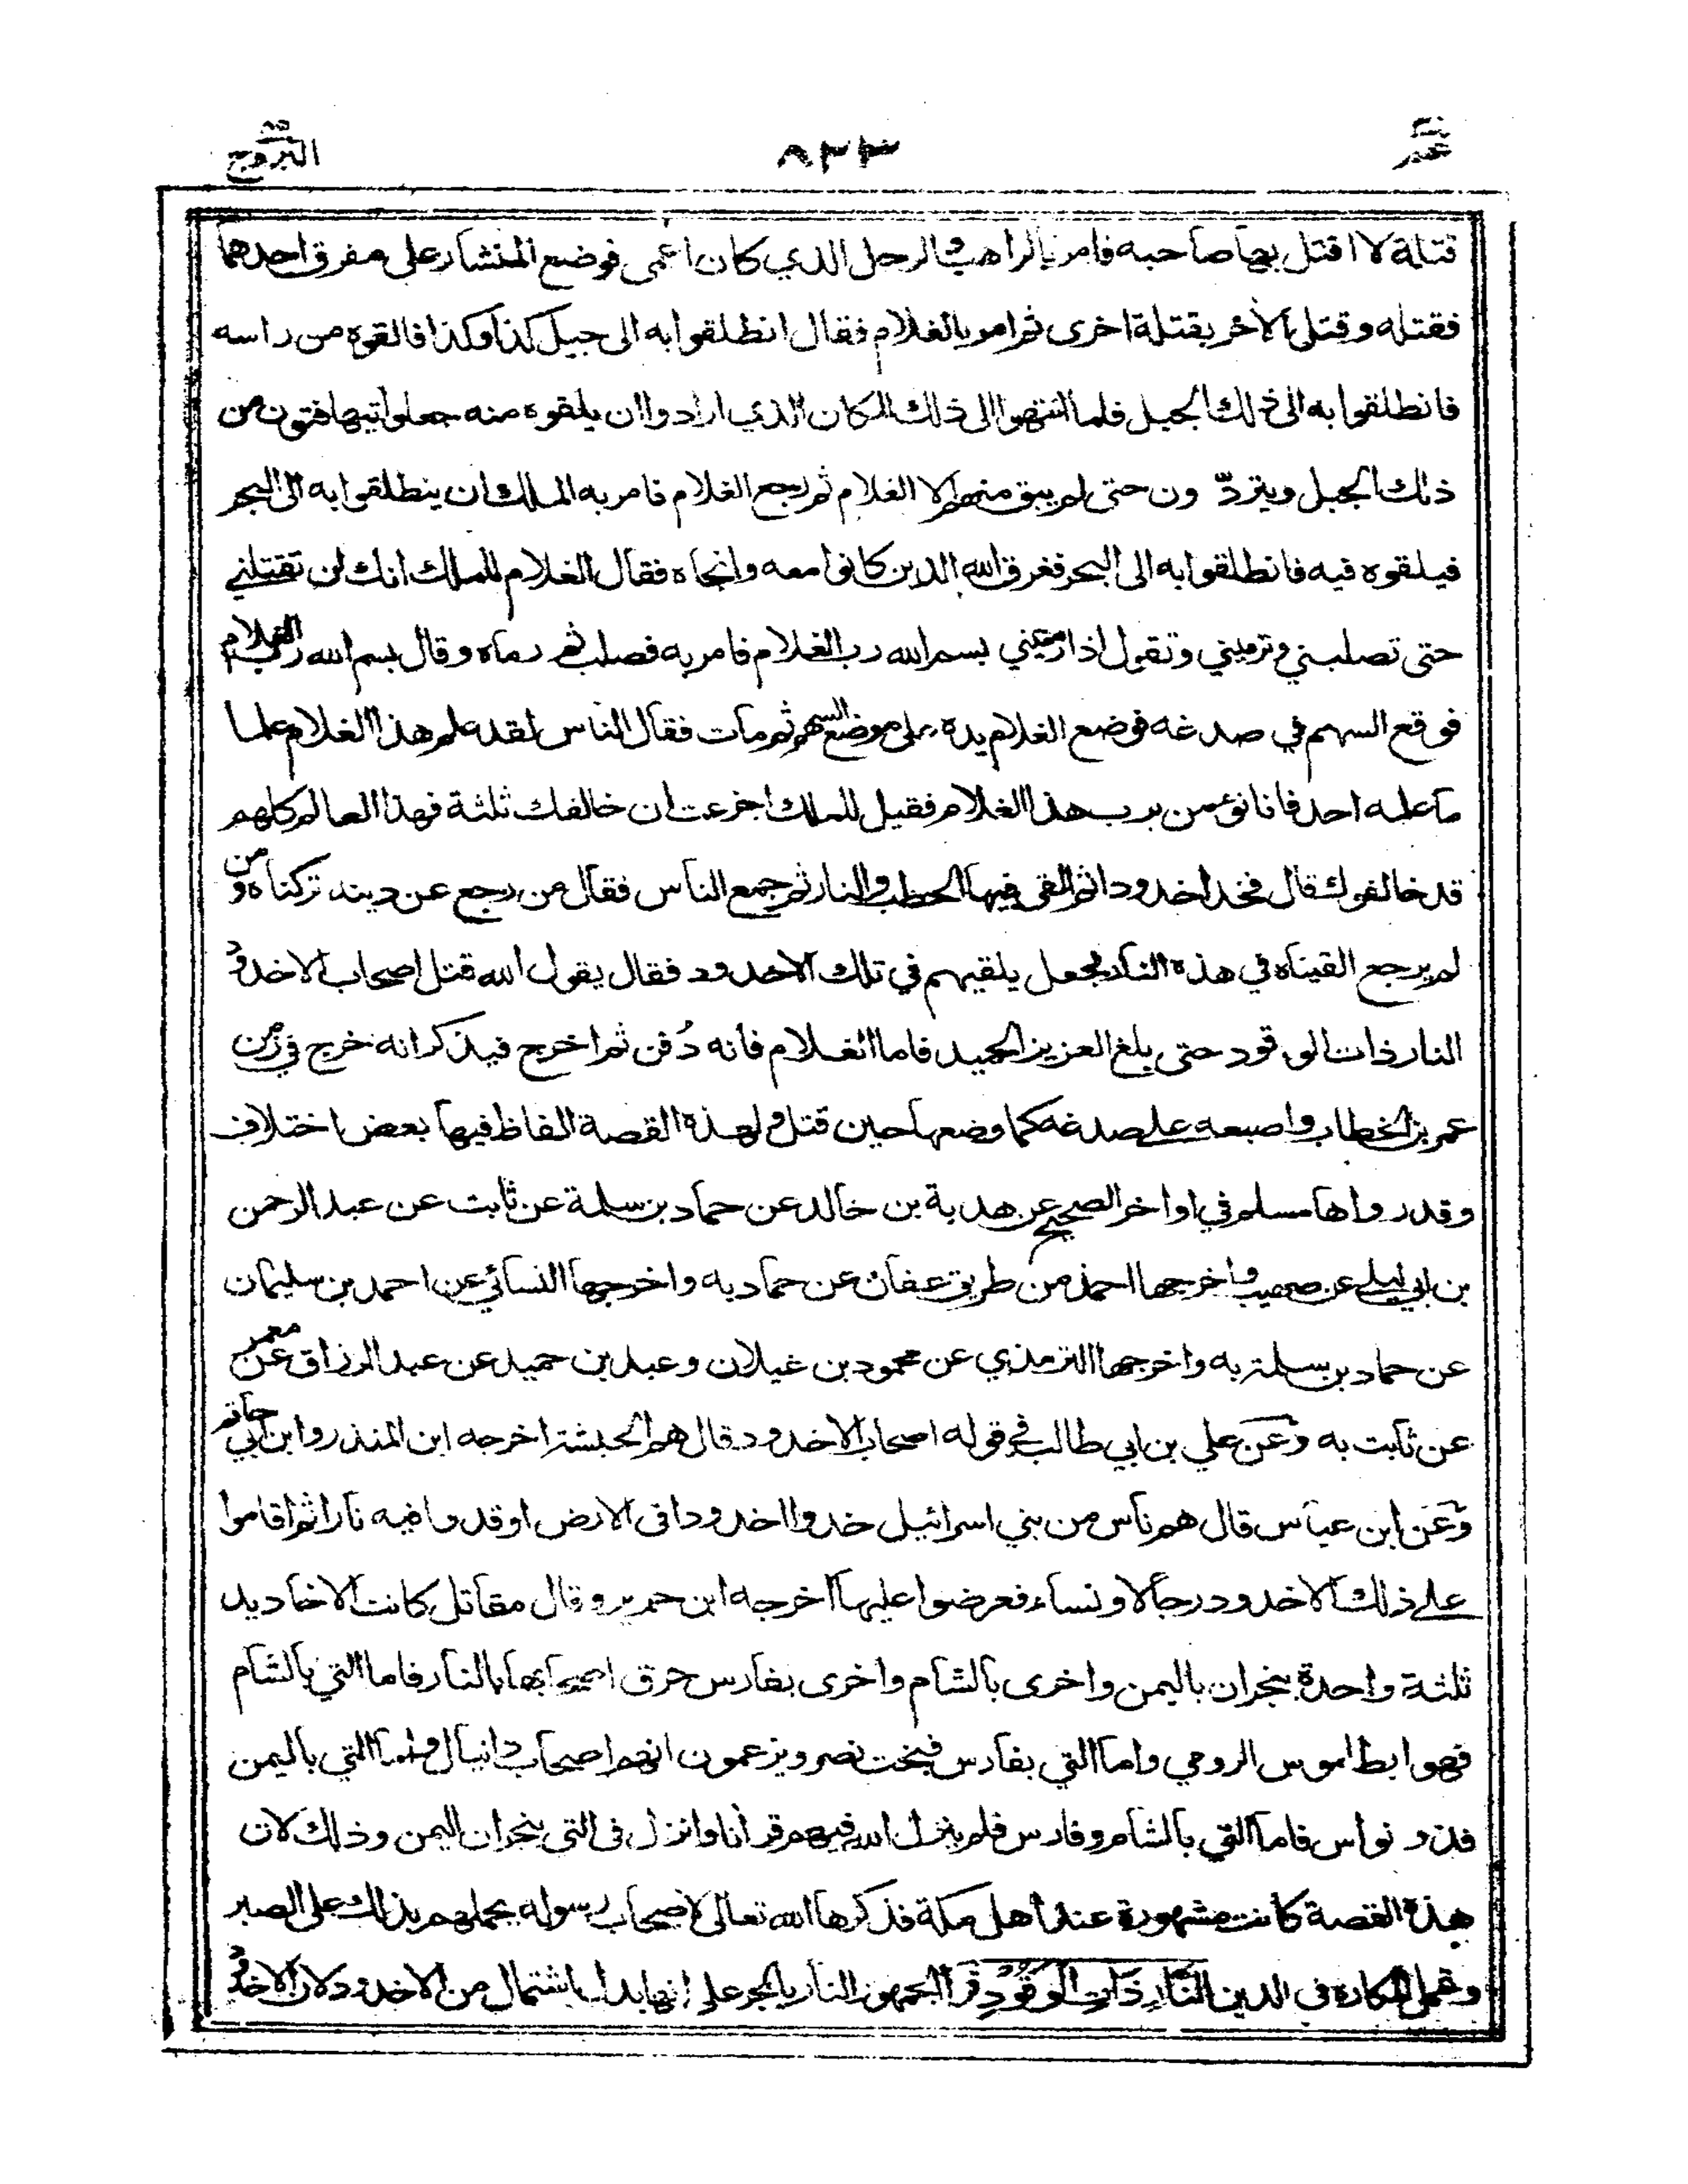 عمّ ٨٣٣ البروج
قتلة لا اقتل بها صاحبه فامر بالراهب والرجل الذي كان اعمى فوضع المنشار على مفرق احدهما
فقتله وقتل الآخر بقتلة اخرى ثم امر بالغلام فقال انطلقوا به الى جبل كذا وكذا فالقوه من راسه
فانطلقوا به الى ذلك الجبل فلما انتهوا الى ذلك المكان الذي ارادوا ان يلقوه منه جعلوا يتهافتون من
ذلك الجبل ويتردّون حتى لم يبق منهم الا الغلام ثم رجع الغلام فامر به الملك ان ينطلقوا به الى البحر
فيلقوه فيه فانطلقوا به الى البحر فغرق الله الذين كانوا معه وانجاه فقال الغلام للملك انك لن تقتلني
حتى تصلبني وترميني وتقول اذا رميتني بسم الله رب الغلام فامر به فصلب ثم رماه وقال بسم الله رب الغلام
فوقع السهم في صدغه فوضع الغلام يده على موضع السهم ثم مات فقال الناس لقد علم هذا الغلام علما
ما علمه احد فانا نؤمن برب هذا الغلام فقيل للملك اجزعت ان خالفك ثلثة فهذا العالم كلهم
قد خالفوك قال فخد اخدودا ثم القى فيها الحطب والنار ثم جمع الناس فقال من رجع عن دينه تركناه ومن
لم يرجع القيناه في هذه النار فجعل يلقيهم في تلك الاخدود فقال يقول الله قتل اصحاب الاخدود
النار ذات الوقود حتى بلغ العزيز الحميد فاما الغلام فانه دُفن ثم اخرج فيذكر انه خرج في زمن
عمر بن الخطاب واصبعه على صدغه كما وضعها حين قتل ولهذه القصة الفاظ فيها بعض اختلاف
وقد رواها مسلم في اواخر الصحيح عن هدبة بن خالد عن حماد بن سلمة عن ثابت عن عبد الرحمن
بن ابي ليلى عن صهيب واخرجها احمد من طريق عفان عن حماد به واخرجها النسائي عن احمد بن سليمان
عن حماد بن سلمة به واخرجها الترمذي عن محمود بن غيلان وعبد بن حميد عن عبد الرزاق عن معمر
عن ثابت به وَعَن علي بن ابي طالب في قوله اصحاب الاخدود قال هم الحبشة اخرجه ابن المنذر وابن ابي حاتم
وَعَن ابن عباس قال هم ناس من بني اسرائيل خدوا اخدودا فى الارض اوقدوا فيه نارا ثم اقاموا
على ذلك الاخدود رجالا ونساء فعرضوا عليها اخرجه ابن جرير وقال مقاتل كانت الاخاديد
ثلثة واحدة بنجران باليمن واخرى بالشام واخرى بفارس حرق اصحابها بالنار فاما التي بالشام
فهو ابطاموس الرومي واما التي بفارس فبخت نصر ويزعمون انهم اصحاب دانيال واما التي باليمن
فذو نواس فاما التي بالشام وفارس فلم ينزل الله فيهم قرآنا وانزل فى التي بنجران اليمن وذلك لان
هذه القصة كانت مشهورة عند اهل مكة فذكرها الله تعالى لاصحاب رسوله يحملهم بذلك على الصبر
وتحمل المكاره فى الدين النَّارِ ذَاتِ الْوَقُودِ قرأ الجمهور النار بالجر على انها بدل اشتمال من الاخدود لان الاخدود